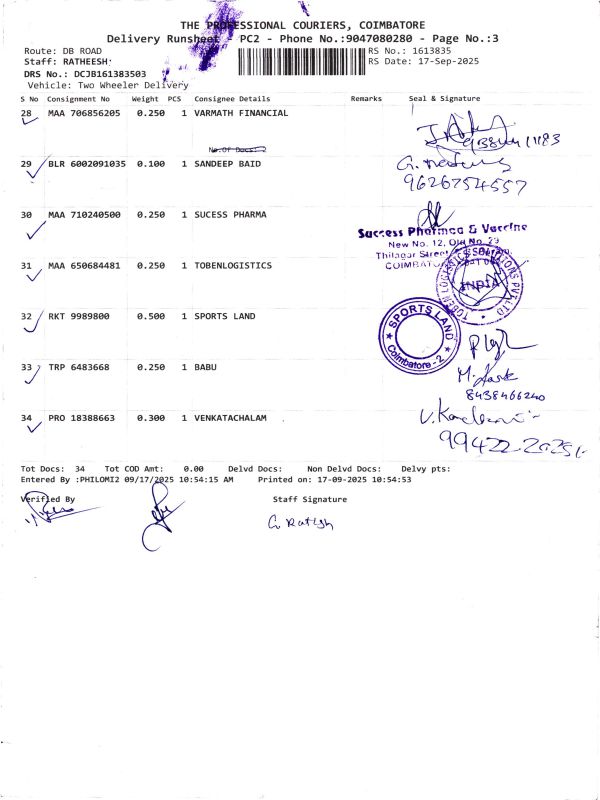 THE PROFESSIONAL COURIERS, COIMBATORE
Delivery Runsheet - PC2 - Phone No.:9047080280 - Page No.:3
Route: DB ROAD
RS No.: 1613835
Staff: RATHEESH
RS Date: 17-Sep-2025
DRS No.: DCJB161383503
Vehicle: Two Wheeler Delivery
S No Consignment No Weight PCS Consignee Details Remarks Seal & Signature
28 MAA 706856205 0.250 1 VARMATH FINANCIAL
No.Of Docs: 2
29 BLR 6002091035 0.100 1 SANDEEP BAID
9626754557
30 MAA 710240500 0.250 1 SUCESS PHARMA
Success Pharmaa & Vaccine
New No. 12, Old No. 29
Thilagar Street
COIMBATORE
31 MAA 650684481 0.250 1 TOBENLOGISTICS
INDIA
32 RKT 9989800 0.500 1 SPORTS LAND
SPORTS LAND
Coimbatore - 2
33 TRP 6483668 0.250 1 BABU
8438466240
34 PRO 18388663 0.300 1 VENKATACHALAM
Tot Docs: 34 Tot COD Amt: 0.00 Delvd Docs: Non Delvd Docs: Delvy pts:
Entered By :PHILOMI2 09/17/2025 10:54:15 AM Printed on: 17-09-2025 10:54:53
Verified By
Staff Signature